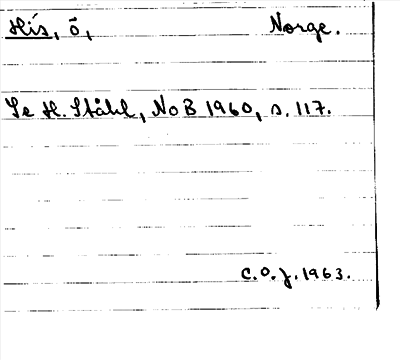 His, ö, Norge.
Se H. Ståhl, NoB 1960, s. 117.
C.O.J. 1963.